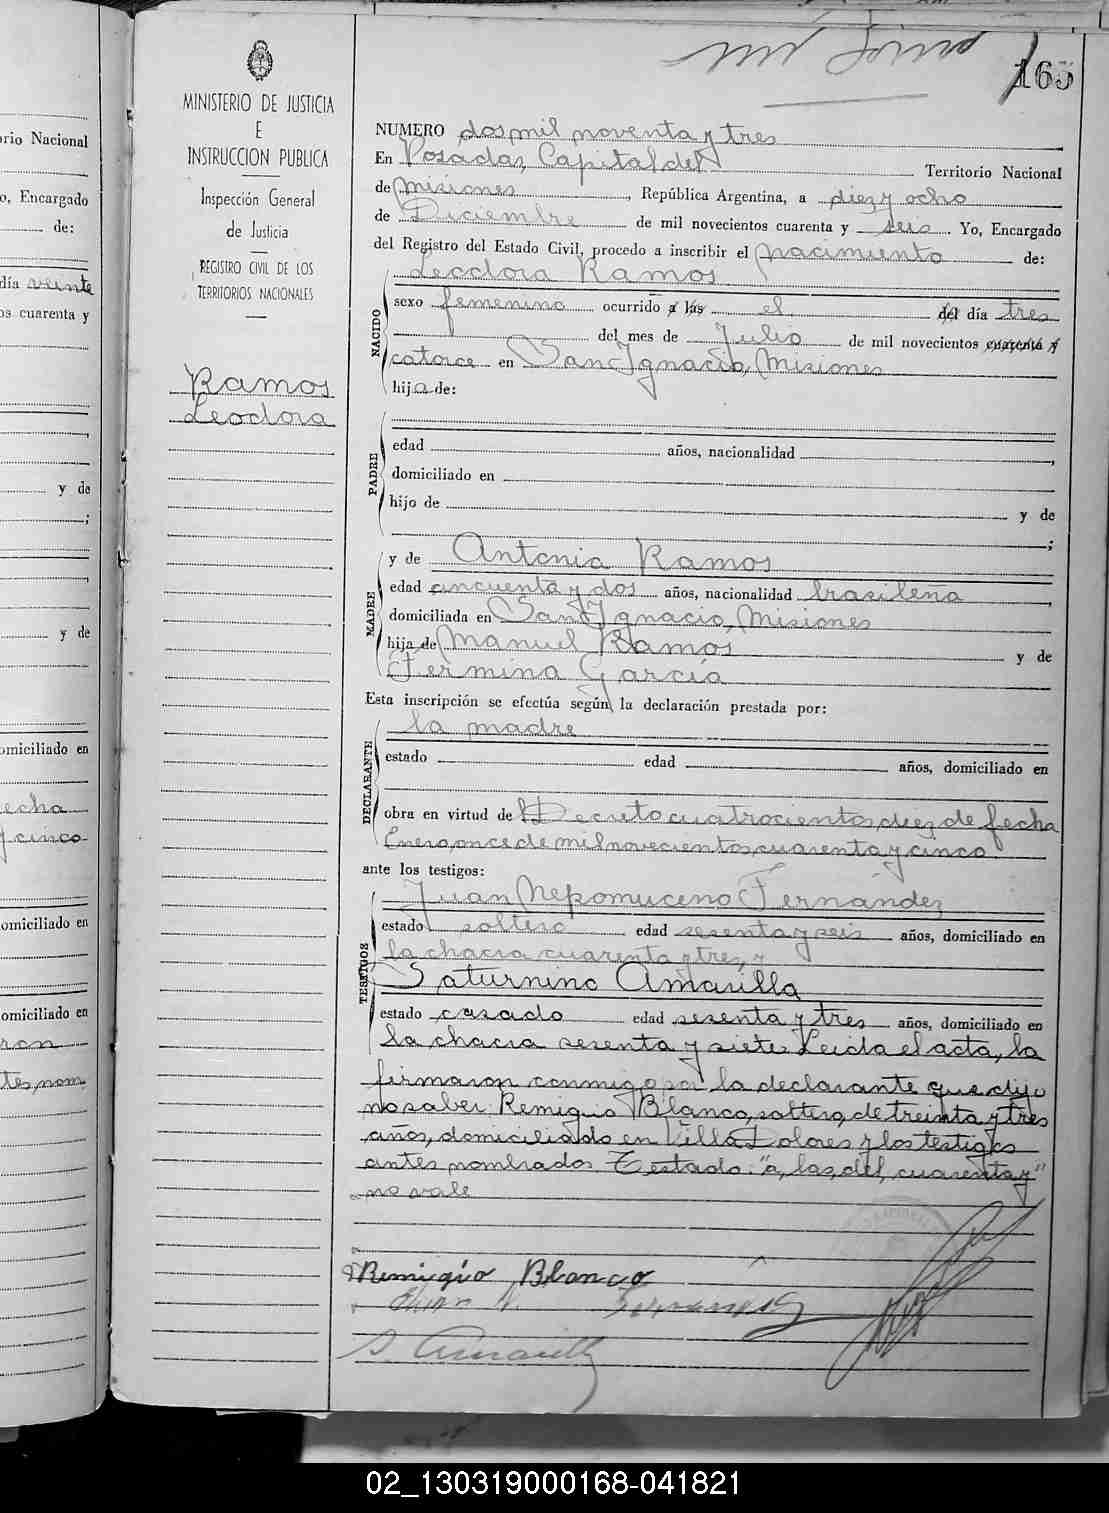 165
MINISTERIO DE JUSTICIA
E
INSTRUCCION PUBLICA
Inspección General
de Justicia
REGISTRO CIVIL DE LOS
TERRITORIOS NACIONALES
Ramos
Leodora
NUMERO dos mil noventa y tres
En Posadas, Capital del Territorio Nacional
de Misiones, República Argentina, a diez y ocho
de Diciembre de mil novecientos cuarenta y seis. Yo, Encargado
del Registro del Estado Civil, procedo a inscribir el nacimiento de:
Leodora Ramos
NACIDO
sexo femenino ocurrido a las el del día tres
del mes de Julio de mil novecientos cuarenta y
catorce en San Ignacio, Misiones
hija de:
PADRE
edad años, nacionalidad ,
domiciliado en
hijo de y de
;
MADRE
y de Antonia Ramos
edad cincuenta y dos años, nacionalidad brasileña,
domiciliada en San Ignacio, Misiones
hija de Manuel Ramos y de
Fermina García
Esta inscripción se efectúa según la declaración prestada por:
DECLARANTE
la madre
estado edad años, domiciliado en
obra en virtud del Decreto cuatrocientos diez de fecha
Enero once de mil novecientos cuarenta y cinco
ante los testigos:
TESTIGOS
Juan Nepomuceno Fernández
estado soltero edad sesenta y seis años, domiciliado en
la chacra cuarenta y tres, y
Saturnino Amarilla
estado casado edad sesenta y tres años, domiciliado en
la chacra sesenta y siete. Leida el acta, la
firmaron conmigo por la declarante que dijo
no saber Remigio Blanco, soltero, de treinta y tres
años, domiciliado en Villa Dolores y los testigos
antes nombrados. Testado: "a, las, del, cuarenta y"
no vale
Remigio Blanco
Juan N. Fernandez
S. Amarilla
rio Nacional
o, Encargado
de:
día veinte
os cuarenta y
y de
;
y de
omiciliado en
echa
y cinco
omiciliado en
omiciliado en
ron
tes nom
02_130319000168-041821